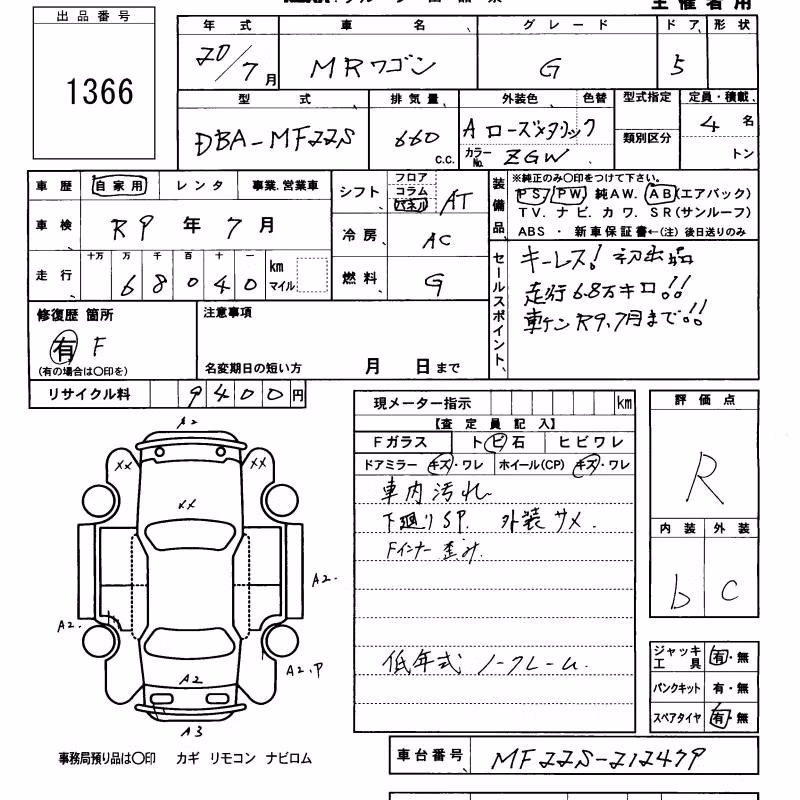 出品番号
1366
主催者用
年式 車名 グレード ドア 形状
20/7月 MRワゴン G 5
型式 排気量、 外装色 色替 型式指定 定員・積載、
DBA-MF22S 660 c.c. Aローズメタリック 類別区分 4名
カラーNo. ZGW トン
車歴 自家用 レンタ 事業.営業車
車検 R9年7月
走行 十万 万 千 百 十 一
68040 km マイル
シフト フロア コラム パネル AT
冷房 AC
燃料 G
装備品、 ※純正のみ〇印をつけて下さい。
PS. PW. 純AW. AB(エアバック)
TV. ナビ. カワ. SR(サンルーフ)
ABS ・ 新車保証書←(注) 後日送りのみ
セールスポイント、
キーレス! 初出品
走行6.8万キロ!!
車ケンR9.7月まで!!
修復歴 箇所
有 F
(有の場合は〇印を)
注意事項
名変期日の短い方 月 日まで
リサイクル料 9400円
現メーター指示 km
【査定員記入】
Fガラス トビ石 ヒビワレ
ドアミラー キズ・ワレ ホイール(CP) キズ・ワレ
車内汚れ
下廻りSP. 外装サメ.
Fインナー歪み.
低年式 ノークレーム.
評価点
R
内装 外装
b C
ジャッキ工具 有・無
パンクキット 有・無
スペアタイヤ 有・無
A2
XX XX
XX
A2.
A2.
A2.P
A2
A3
事務局預り品は〇印 カギ リモコン ナビロム
車台番号 MF22S-212479